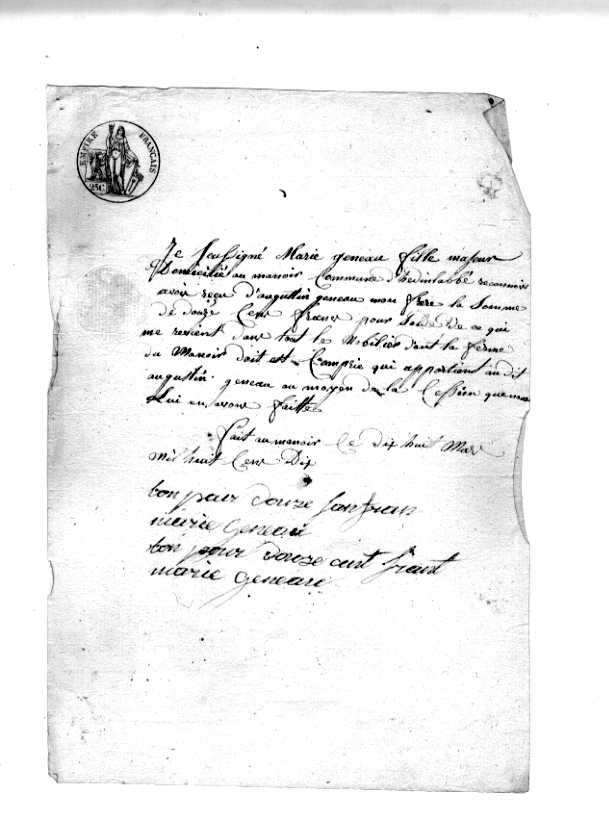 EMPIRE FRANÇAIS
25C
Je soussigné Marie geneau fille majeur
Domicilié au manoir Commune d'hedinlabbé reconnois
avoir reçu d'augustin geneau mon frere la Somme
de douze Cens francs pour Solde De ce qui
me revient dans tout le Mobilier dont la ferme
du Manoir doit est Comprie qui appartient audit
augustin geneau au moyen de la Cession que
lui en avons faitte
fait au manoir le dix huit Mars
Mil huit Cens Dix
bon pour douze san fran
marie geneau
bon pour douze cent frant
marie geneau